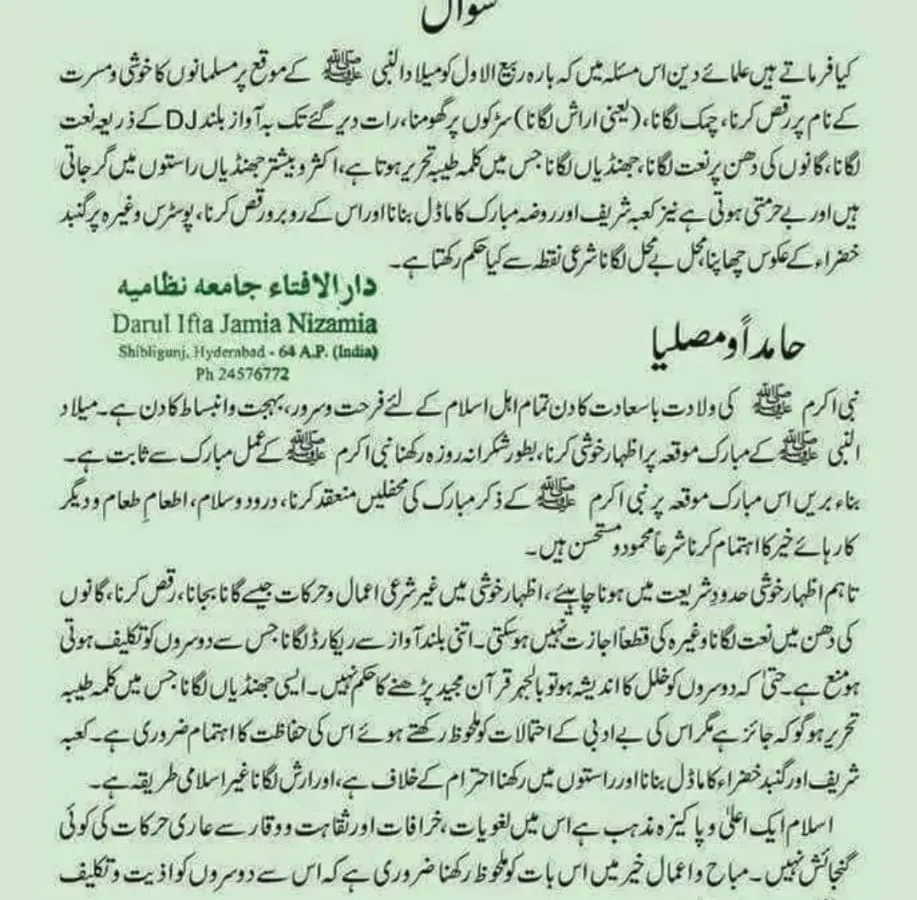 سوال
کیا فرماتے ہیں علمائے دین اس مسئلہ میں کہ بارہ ربیع الاول کو میلاد النبی ﷺ کے موقع پر مسلمانوں کا خوشی ومسرت
کے نام پر رقص کرنا، چمک لگانا، (یعنی اراش لگانا) سڑکوں پر گھومنا، رات دیر گئے تک بہ آواز بلند DJ کے ذریعہ نعت
لگانا، گانوں کی دھن پر نعت لگانا، جھنڈیاں لگانا جس میں کلمہ طیبہ تحریر ہوتا ہے، اکثر و بیشتر جھنڈیاں راستوں میں گر جاتی
ہیں اور بے حرمتی ہوتی ہے نیز کعبہ شریف اور روضہ مبارک کا ماڈل بنانا اور اس کے روبرو رقص کرنا، پوسٹرس وغیرہ پر گنبد
خضراء کے عکوس چھاپنا، محل بے محل لگانا شرعی نقطہ سے کیا حکم رکھتا ہے۔
دار الافتاء جامعہ نظامیہ
Darul Ifta Jamia Nizamia
Shibligunj, Hyderabad - 64 A.P. (India)
Ph 24576772
حامداً ومصلیا
نبی اکرم ﷺ کی ولادت باسعادت کا دن تمام اہل اسلام کے لئے فرحت و سرور، بہجت وانبساط کا دن ہے۔ میلاد
النبی ﷺ کے مبارک موقعہ پر اظہار خوشی کرنا، بطور شکرانہ روزہ رکھنا نبی اکرم ﷺ کے عمل مبارک سے ثابت ہے۔
بناء بریں اس مبارک موقعہ پر نبی اکرم ﷺ کے ذکر مبارک کی محفلیں منعقد کرنا، درود وسلام، اطعامِ طعام و دیگر
کارہائے خیر کا اہتمام کرنا شرعاً محمود و مستحسن ہیں۔
تاہم اظہار خوشی حدودِ شریعت میں ہونا چاہیئے، اظہار خوشی میں غیر شرعی اعمال و حرکات جیسے گانا بجانا، رقص کرنا، گانوں
کی دھن میں نعت لگانا وغیرہ کی قطعاً اجازت نہیں ہوسکتی۔ اتنی بلند آواز سے ریکارڈ لگانا جس سے دوسروں کو تکلیف ہوتی
ہو منع ہے۔ حتیٰ کہ دوسروں کو خلل کا اندیشہ ہو تو بالجہر قرآن مجید پڑھنے کا حکم نہیں۔ ایسی جھنڈیاں لگانا جس میں کلمہ طیبہ
تحریر ہو گو کہ جائز ہے مگر اس کی بے ادبی کے احتمالات کو ملحوظ رکھتے ہوئے اس کی حفاظت کا اہتمام ضروری ہے۔ کعبہ
شریف اور گنبد خضراء کا ماڈل بنانا اور راستوں میں رکھنا احترام کے خلاف ہے، اور ارش لگانا غیر اسلامی طریقہ ہے۔
اسلام ایک اعلیٰ و پاکیزہ مذہب ہے اس میں لغویات، خرافات اور ثقاہت و وقار سے عاری حرکات کی کوئی
گنجائش نہیں۔ مباح و اعمال خیر میں اس بات کو ملحوظ رکھنا ضروری ہے کہ اس سے دوسروں کو اذیت و تکلیف